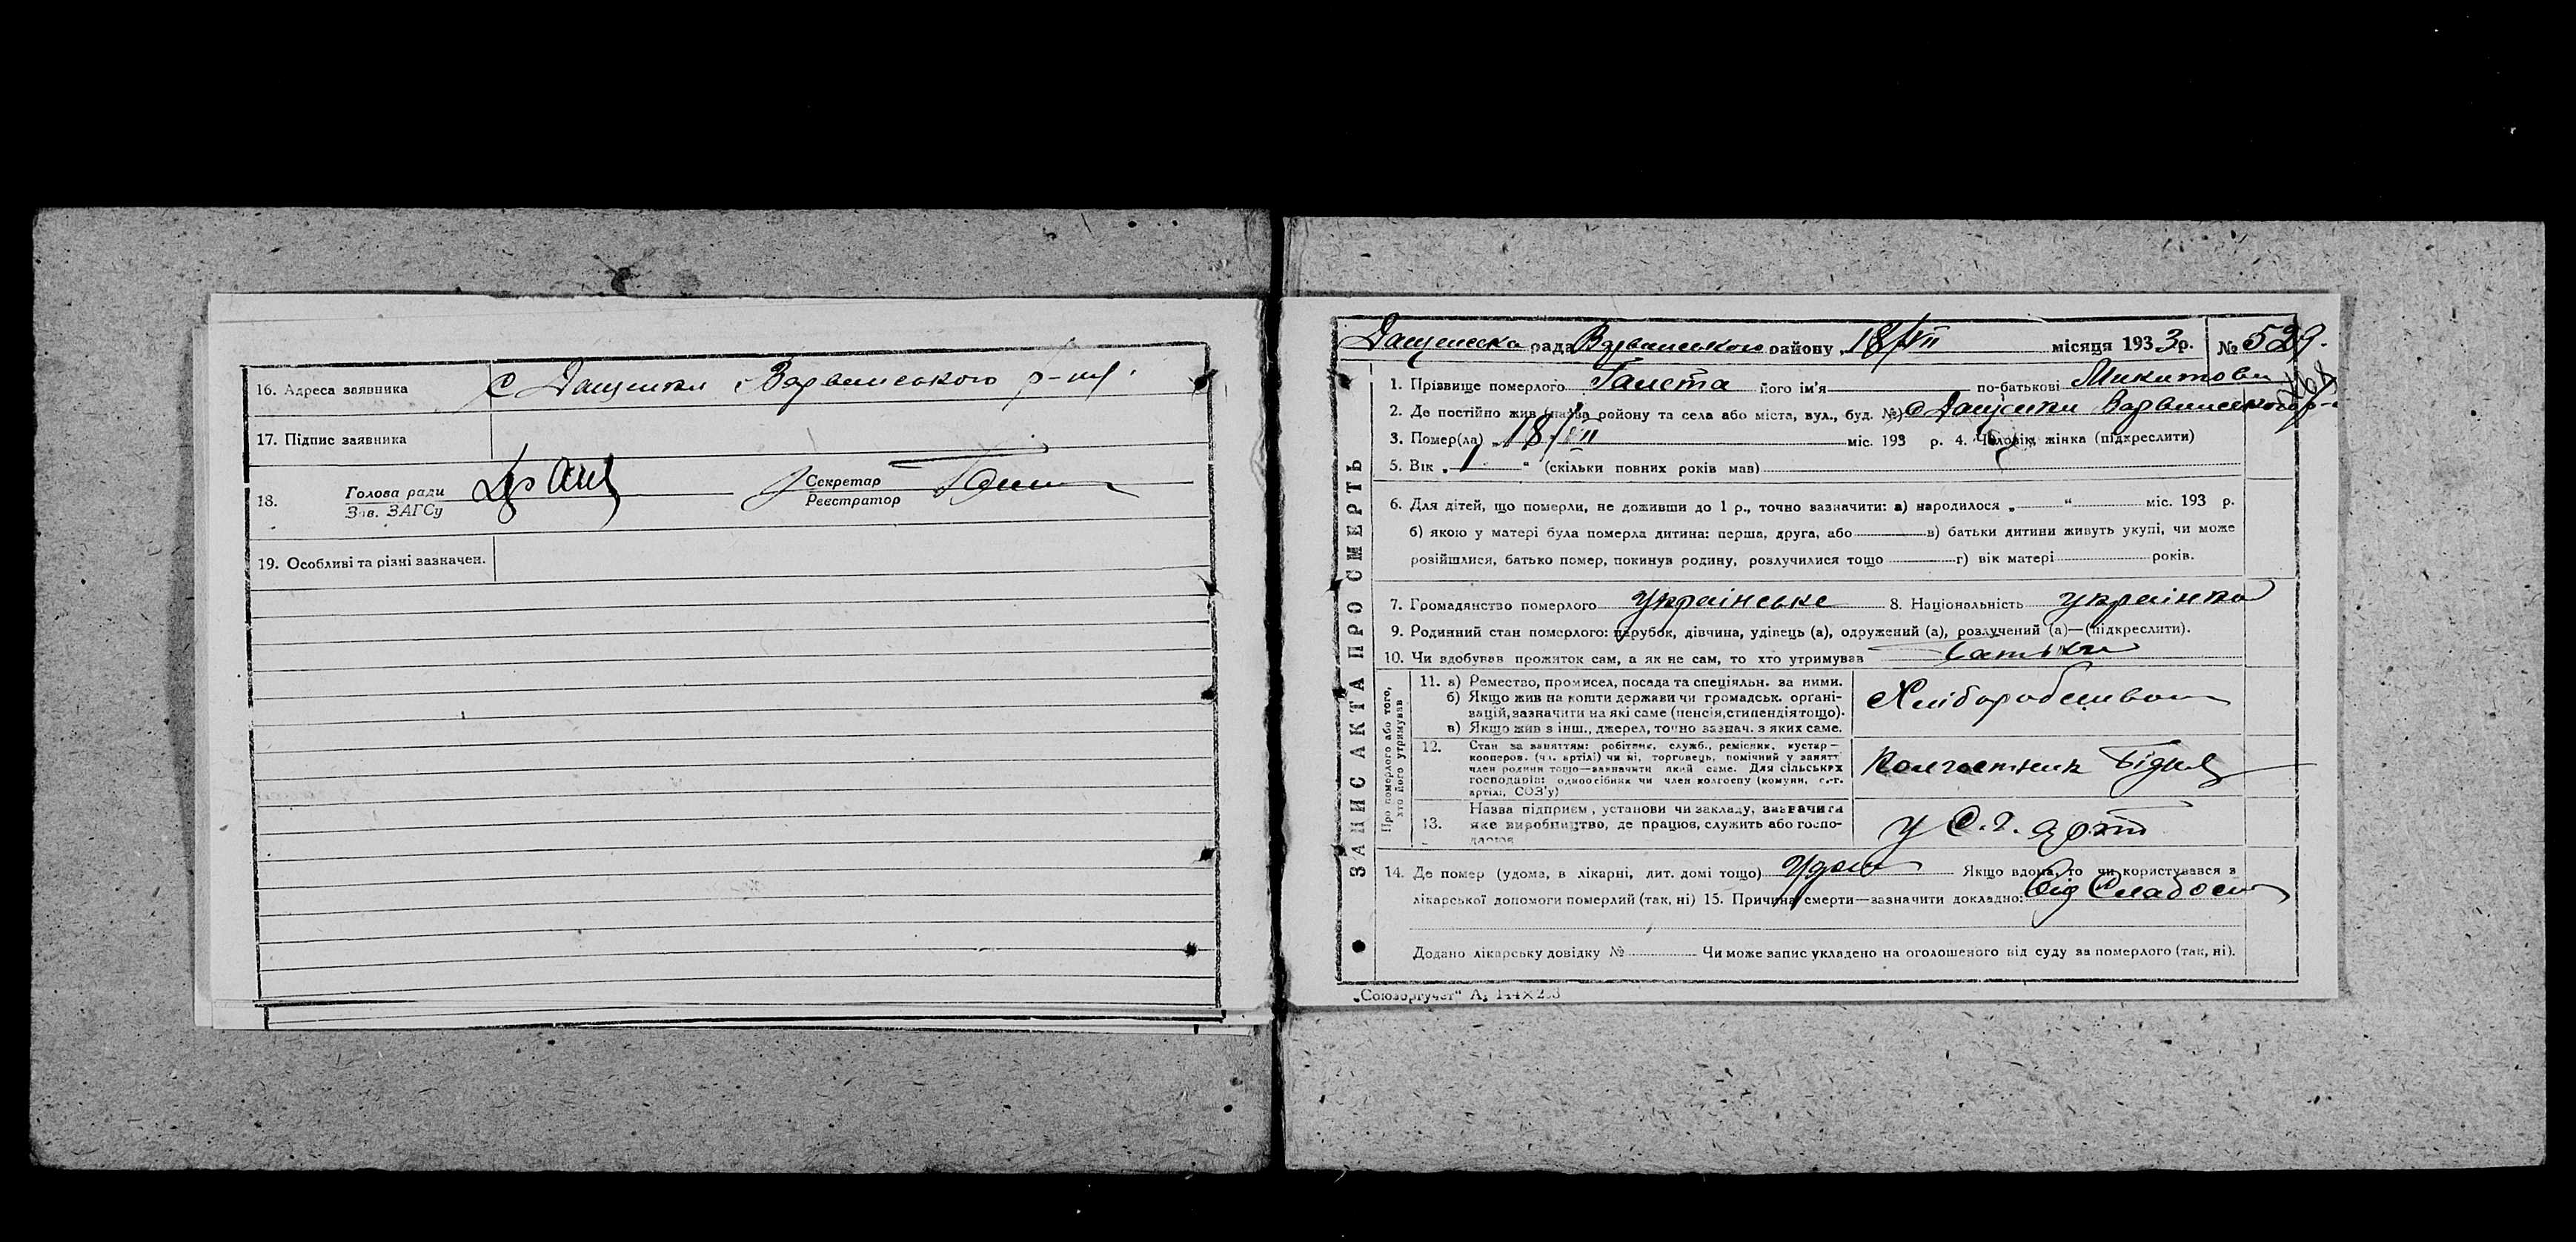 16. Адреса заявника с Дащенки Варвинського р-ну.
17. Підпис заявника
18. Голова ради
Зав. ЗАГСу
Секретар
Реєстратор
19. Особливі та різні зазначен.
рада Варвинського району 18/VII місяця 1933 р. № 529.
ЗАПИС АКТА ПРО СМЕРТЬ
1. Прізвище померлого його ім'я по-батькові Микитовн
2. Де постійно жив (назва району та села або міста, вул., буд. №) с Дащенки Варвинського р-
3. Помер(ла) „ 18/VII міс. 193 р. 4. Чоловік, жінка (підкреслити)
5. Вік „ 1 “ (скільки повних років мав)
6. Для дітей, що померли, не доживши до 1 р., точно зазначити: а) народилося „ “ міс. 193 р.
б) якою у матері була померла дитина: перша, друга, або в) батьки дитини живуть укупі, чи може
розійшлися, батько помер, покинув родину, розлучилися тощо г) вік матері років.
7. Громадянство померлого українське 8. Національність українка
9. Родинний стан померлого: парубок, дівчина, удівець (а), одружений (а), розлучений (а)—(підкреслити).
10. Чи здобував прожиток сам, а як не сам, то хто утримував батьки
Про померлого або того, хто його утримував
11. а) Ремество, промисел, посада та спеціяльн. за ними.
б) Якщо жив на кошти держави чи громадськ. органі-
зацій, зазначити на які саме (пенсія, стипендія тощо).
в) Якщо жив з інш., джерел, точно зазнач. з яких саме.
Хліборобство
12. Стан за заняттям: робітник, служб., ремісник, кустар—
кооперов. (чл. артілі) чи ні, торговець, помічний у занятт
член родини тощо—зазначити який саме. Для сільських
господарів: одноосібник чи член колгоспу (комуни, с.-г.
артілі, СОЗ'у)
Колгоспник бідняк
13. Назва підприєм., установи чи закладу, зазначити
яке виробництво, де працює, служить або госпо-
дарює
у С.г. арті
14. Де помер (удома, в лікарні, дит. домі тощо) Удома Якщо вдома, то чи користувався з
лікарської допомоги померлий (так, ні) 15. Причина смерти—зазначити докладно: Від слабости
Додано лікарську довідку № Чи може запис укладено на оголошеного від суду за померлого (так, ні).
„Союзоргучет“